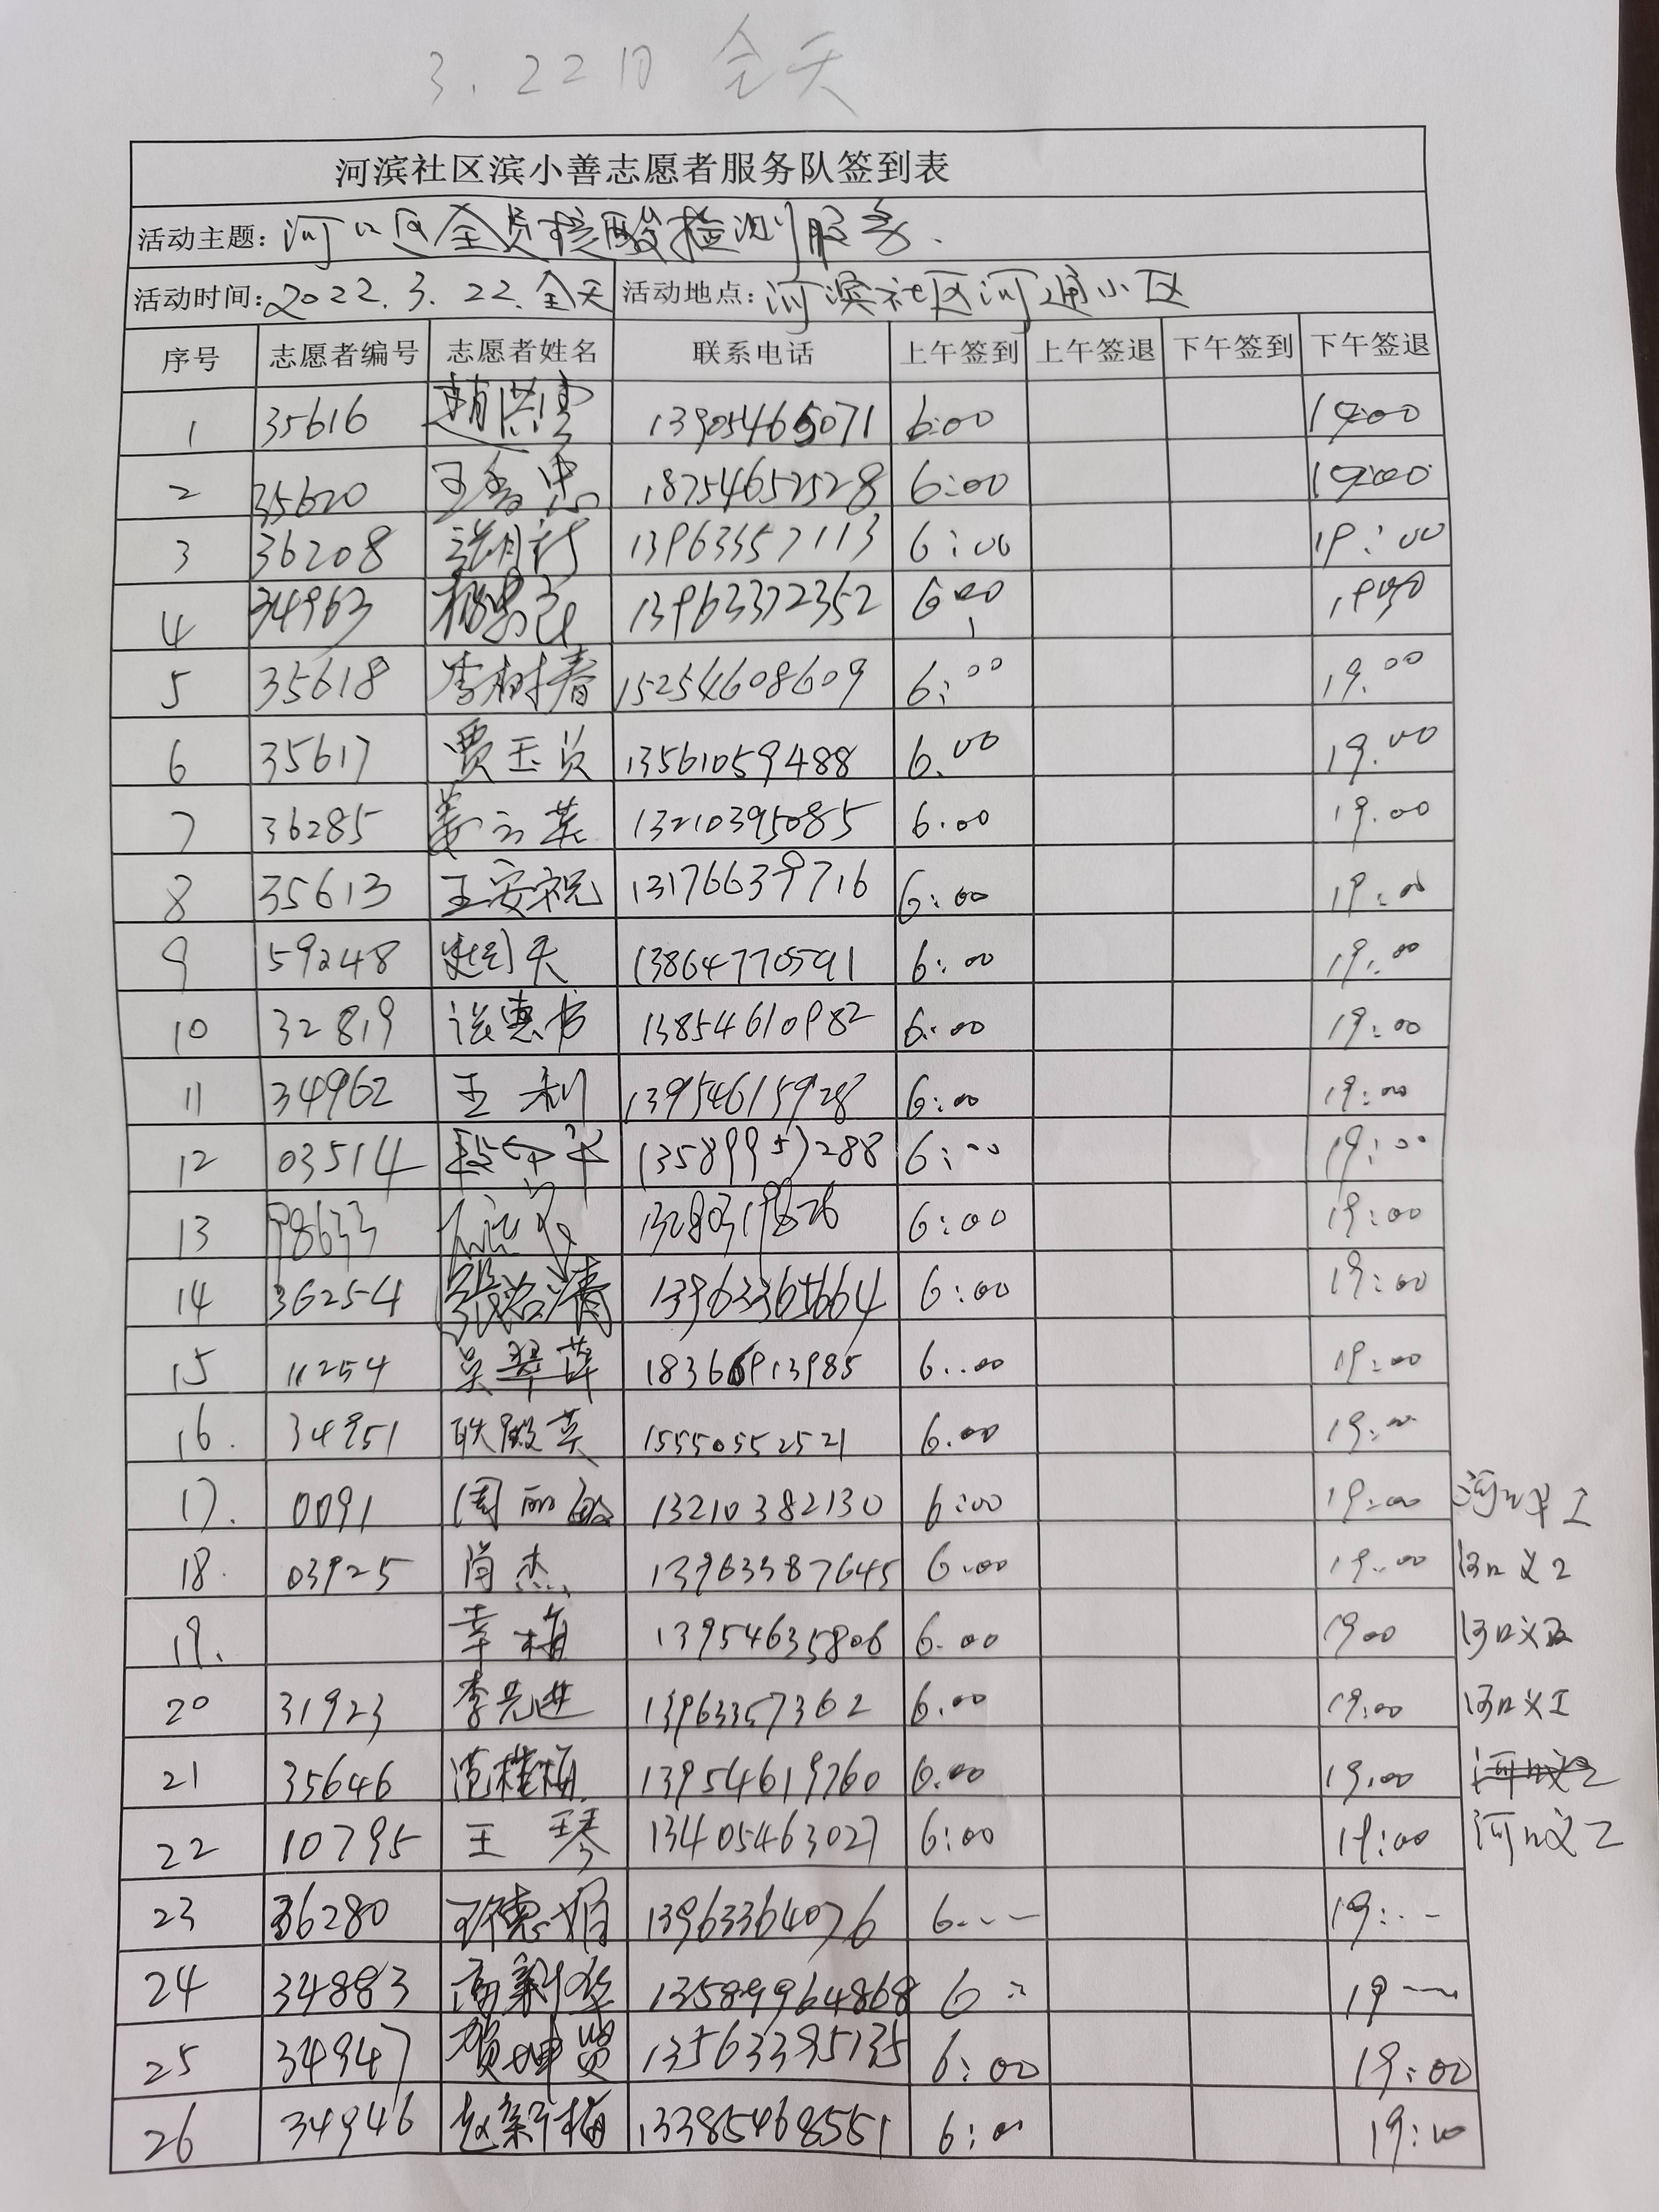 3.22日 全天
河滨社区滨小善志愿者服务队签到表
活动主题：河口区全员核酸检测服务.
活动时间：2022.3.22.全天 活动地点：河滨社区河通小区
序号 志愿者编号 志愿者姓名 联系电话 上午签到 上午签退 下午签到 下午签退
1 35616 13905465071 6:00 19:00
2 35620 18754652528 6:00 19:00
3 36208 13963357113 6:00 19:00
4 34963 13963372352 6:00 19:00
5 35618 李树春 15254608609 6:00 19.00
6 35617 贾玉贞 13561059488 6.00 19.00
7 36285 姜云英 13210395085 6.00 19.00
8 35613 王安祝 13176639716 6:00 19:00
9 59248 13864770591 6:00 19:00
10 32819 13854610982 6:00 19:00
11 34962 王利 13954615928 6:00 19:00
12 03514 13589957288 6:00 19:00
13 98633 6:00 19:00
14 36254 张洛清 13963365664 6:00 19:00
15 11254 吴翠萍 18366913985 6:00 19:00
16. 34951 耿殿英 15550552521 6.00 19:00
17. 0091 周丽敏 13210382130 6:00 19:00 河口义工
18. 03925 肖杰 13963387645 6.00 19:00 河口义工
19. 辛梅 13954635806 6.00 1900 河口义工
20 31923 李先进 13963357362 6.00 19:00 河口义工
21 35646 范桂梅 13954619760 6.00 19:00
22 10795 王琴 13405463027 6:00 19:00 河口义工
23 36280 13963364076 6 19:
24 34883 高新华 13589964868 6: 19
25 34947 贺坤贤 13563395135 6:00 19:00
26 34946 赵新梅 13385468551 6:00 19:00